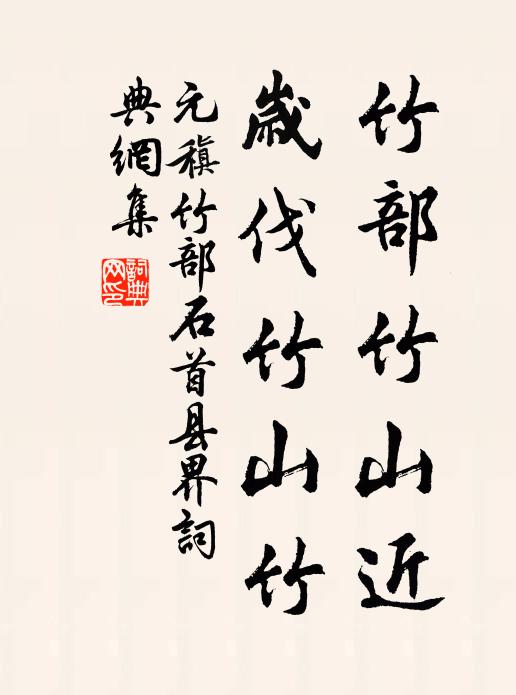 竹部竹山近
歲伐竹山竹
元稹竹部石首县界詞
典網集
詞典网印